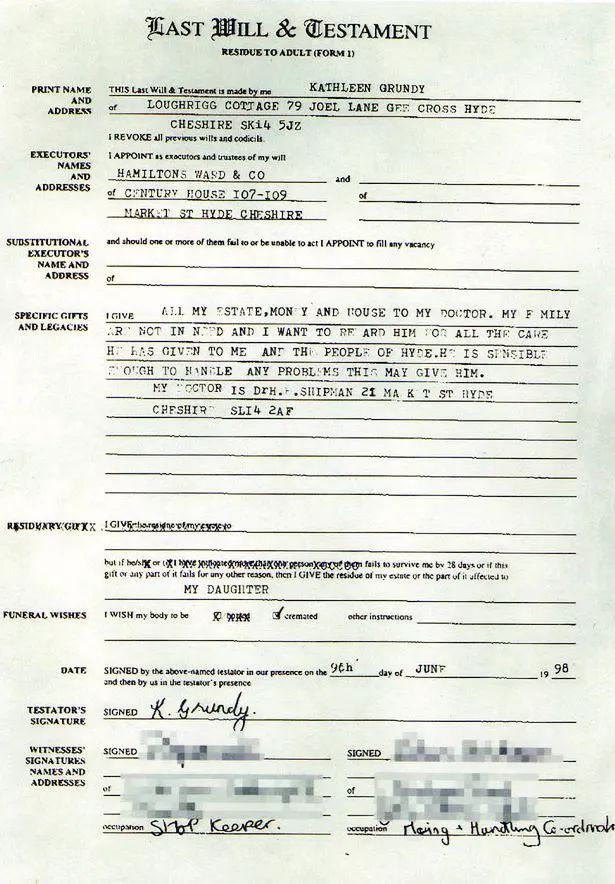 LAST WILL & TESTAMENT
RESIDUE TO ADULT (FORM 1)
PRINT NAME AND ADDRESS
THIS Last Will & Testament is made by me KATHLEEN GRUNDY
of LOUGHRIGG COTTAGE 79 JOEL LANE GEE CROSS HYDE
CHESHIRE SK14 5JZ
I REVOKE all previous wills and codicils.
EXECUTORS' NAMES AND ADDRESSES
I APPOINT as executors and trustees of my will
HAMILTONS WARD & CO and
of CENTURY HOUSE I07-I09 of
MARKET ST HYDE CHESHIRE
SUBSTITUTIONAL EXECUTOR'S NAME AND ADDRESS
and should one or more of them fail to or be unable to act I APPOINT to fill any vacancy
of
SPECIFIC GIFTS AND LEGACIES
I GIVE ALL MY ESTATE,MONEY AND HOUSE TO MY DOCTOR. MY F MILY
ARE NOT IN NEED AND I WANT TO RE ARD HIM FOR ALL THE CARE
HE HAS GIVEN TO ME AND THE PEOPLE OF HYDE.HE IS SENSIBLE
ENOUGH TO HANDLE ANY PROBLEMS THIS MAY GIVE HIM.
MY DOCTOR IS DrH.F.SHIPMAN 21 MA K T ST HYDE
CHESHIRE SL14 2AF
RESIDUARY GIFT
I GIVE the residue of my estate to
but if he/she or
fails to survive me by 28 days or if this
gift or any part of it fails for any other reason, then I GIVE the residue of my estate or the part of it affected to
MY DAUGHTER
FUNERAL WISHES
I WISH my body to be cremated other instructions
DATE
SIGNED by the above-named testator in our presence on the 9th day of JUNE 19 98
and then by us in the testator's presence
TESTATOR'S SIGNATURE
SIGNED K. Grundy.
WITNESSES' SIGNATURES NAMES AND ADDRESSES
SIGNED SIGNED
of of
occupation SHOP KEEPER. occupation Moving + Handling Co-ordinator